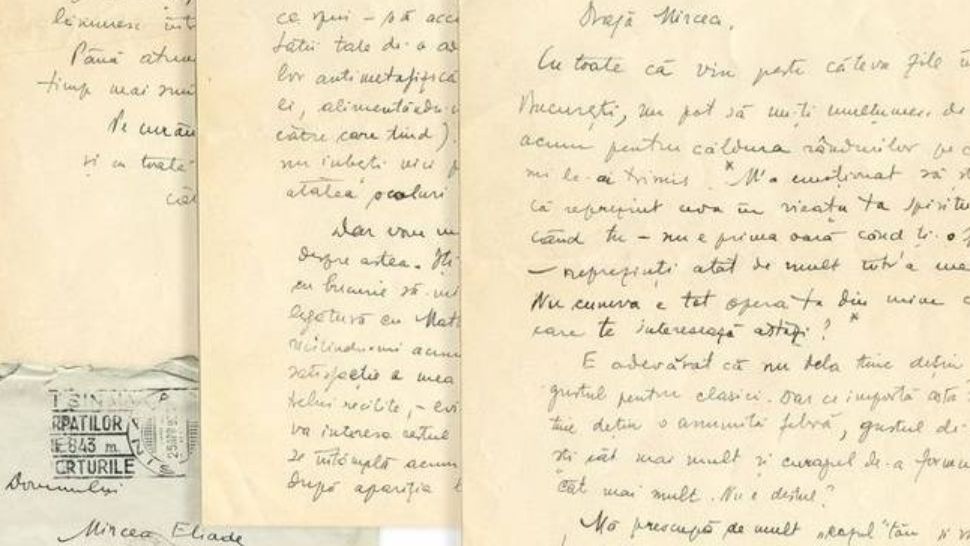 lămuresc
Până
timp mai
și cu toată
ce spui – să
tății tale de a
lor antimetafizică
ei, alimentându
către care tind).
nu iubești nici
atâtea ocoluri
Dar vom
despre astea. Îți
cu bucurie să
legătură cu
recitindu-mi acum
satisfacție a mea
recitite, –
va interesa
se întâmplă acum
După apariția
Dragă Mircea,
Cu toate că vin peste câteva zile
București, nu pot să nu-ți mulțumesc de
acum pentru căldura rândurilor pe
mi le-ai trimis. M'a emoționat să
că reprezint ceva în vieața ta
când tu – nu e prima oară când ți-o
– reprezinți atât de mult într'a
Nu cumva e tot opera ta din mine
care te interesează astăzi?
E adevărat că nu dela tine dețin
gustul pentru clasici. Dar ce importă asta
tine dețin o anumită febră, gustul de
ști cât mai mult și curajul de-a
cât mai mult. Nu e destul?
Mă preocupă de mult „ tău și
T SIN
RPATILOR
843 m.
CRTURILE
Domnului
Mircea Eliade